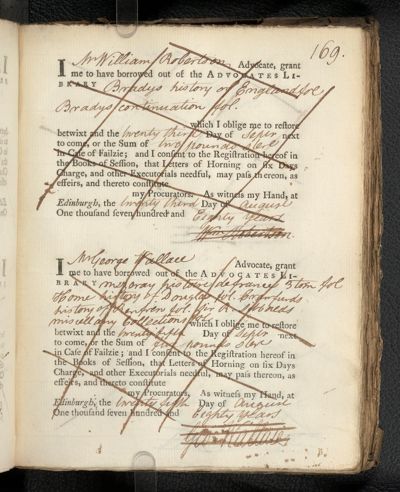 169.
I Mr William Robertson Advocate, grant
me to have borrowed out of the ADVOCATES LI-
BRARY Bradys history of England &c
Bradys continuation fol.
which I oblige me to restore
betwixt and the twenty third Day of Septr next
to come, or the Sum of two pounds Ster
In Case of Failzie; and I consent to the Registration hereof in
the Books of Session, that Letters of Horning on six Days
Charge, and other Executorials needful, may pass thereon, as
effeirs, and thereto constitute
my Procurators. As witness my Hand, at
Edinburgh, the twenty third Day of August
One thousand seven hundred and Eighty Years
Wm Robertson
I Mr George Wallace Advocate, grant
me to have borrowed out of the ADVOCATES LI-
BRARY mezeray histoire de france 3 tom fol
Home history of Douglas fol. Crawfurds
history of Renfrew fol. Sir R
miscellany Collections
which I oblige me to restore
betwixt and the twenty fifth Day of Septr next
to come, or the Sum of pounds Ster
in Case of Failzie; and I consent to the Registration hereof in
the Books of Session, that Letters of Horning on six Days
Charge, and other Executorials needful, may pass thereon, as
effeirs, and thereto constitute
my Procurators. As witness my Hand, at
Edinburgh, the twenty fifth Day of August
One thousand seven hundred and Eighty Years
Geo Wallace